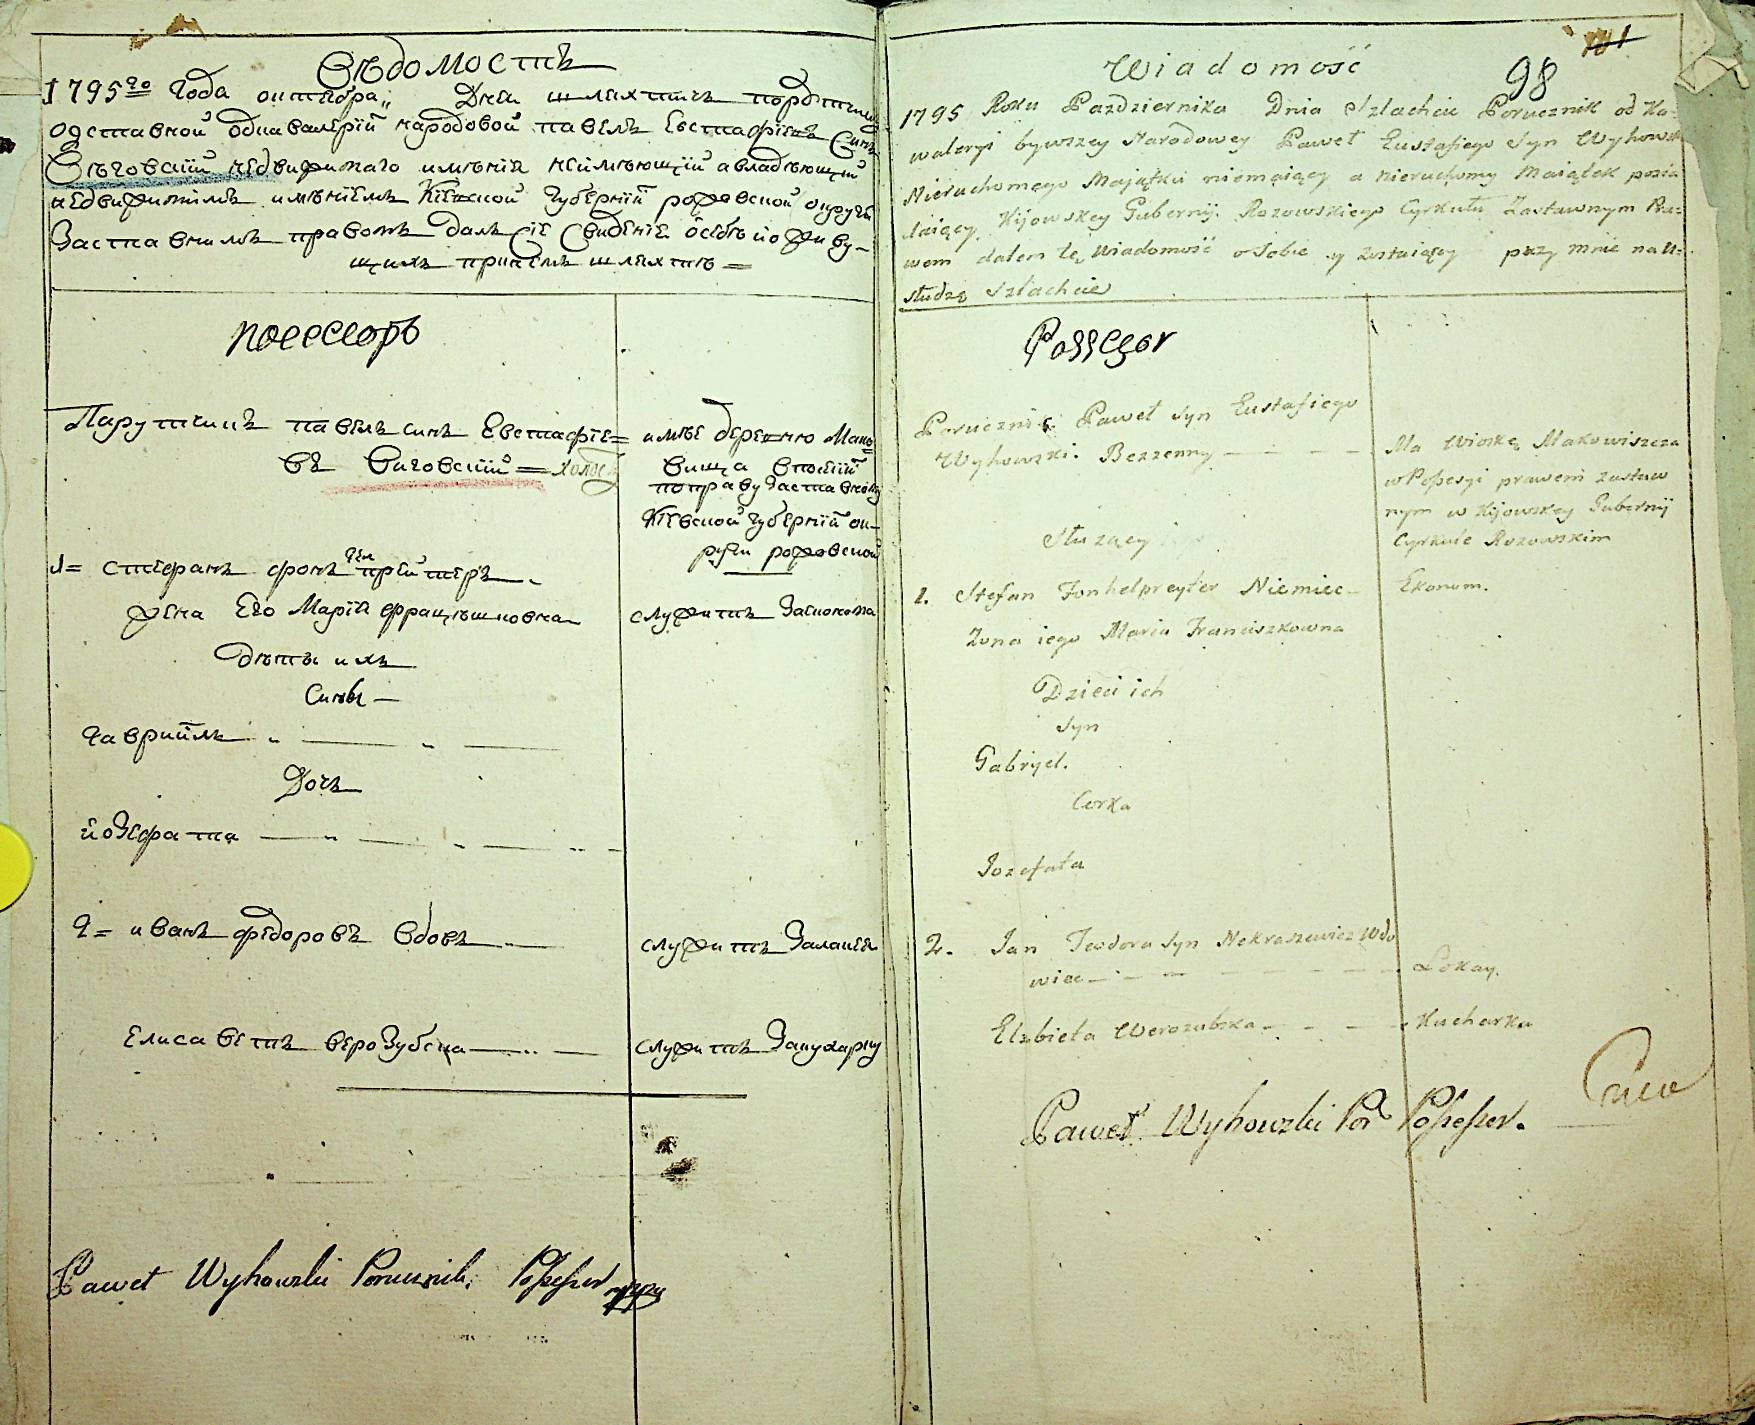 Вѣдомость
1795го года октебра„ Дня шляхтичъ порутчикъ
одставной одкавалерїй народовой павелъ Евстафїевъ Синъ
Виговскїй недвижимаго имѣния неимѣющїй авладѣющїй
недвижимимъ имѣнїемъ Кїевской Губернїй рожовской округи
Заставнимъ правомъ далъ сїе Свидѣние особѣ йо живу-
щихъ приемъ шляхтѣ =
посессоръ
Парутчикъ павелъ синъ Евстафїе=
въ Виговскїй = холост
имѣе деревню Мако
вища впосїи
поправу Заставному
Кїевской губернїй ок-
руги рожовской
1= стефанъ фонъ гел прейтеръ
жена Его Марїя францѣшковна
служитъ Заекокома
дѣты ихъ
Синъ —
гаврийлъ
Дочъ
йозефата
2= иванъ федоровъ вдовъ
служитъ Залакея
Елисаветъ верозубска
служитъ Закухарку
Paweł Wyhowski Porucznik, Possessor mppa
98
101
Wiadomość
1795 Roku Pazdziernika Dnia Szlachcic Porucznik od Ka-
waleryi bywszey Narodowey Paweł Eustafiego Syn Wyhowski
Nieruchomego Maiątku niemaiący a nieruchomy Maiątek posia
daiący Kijowskey Gubernij Rozowskiego Cyrkułu Zastawnym Pra-
wem dałem tę Wiadomość o Sobie y zostaiący przy mnie na U-
studze Szlachcie
Possessor
Porucznik Paweł Syn Eustafiego
Wyhowski. Bezzenny
Ma Wioskę Makowiszcza
w Possesyi prawem zastaw
nym w Kijowskey Gubernij
Cyrkule Rozowskim
Służący
1. Stefan Fonhelpreyter Niemiec — Ekonom.
Zona iego Maria Franciszkowna
Dzieci ich
Syn
Gabryel.
Corka
Jozefata
2. Jan Teodora Syn Nekraszewicz Wdo
wiec — Lokay.
Elzbieta Werozubska — Kucharka
Paweł Wyhowski Por Possessor.